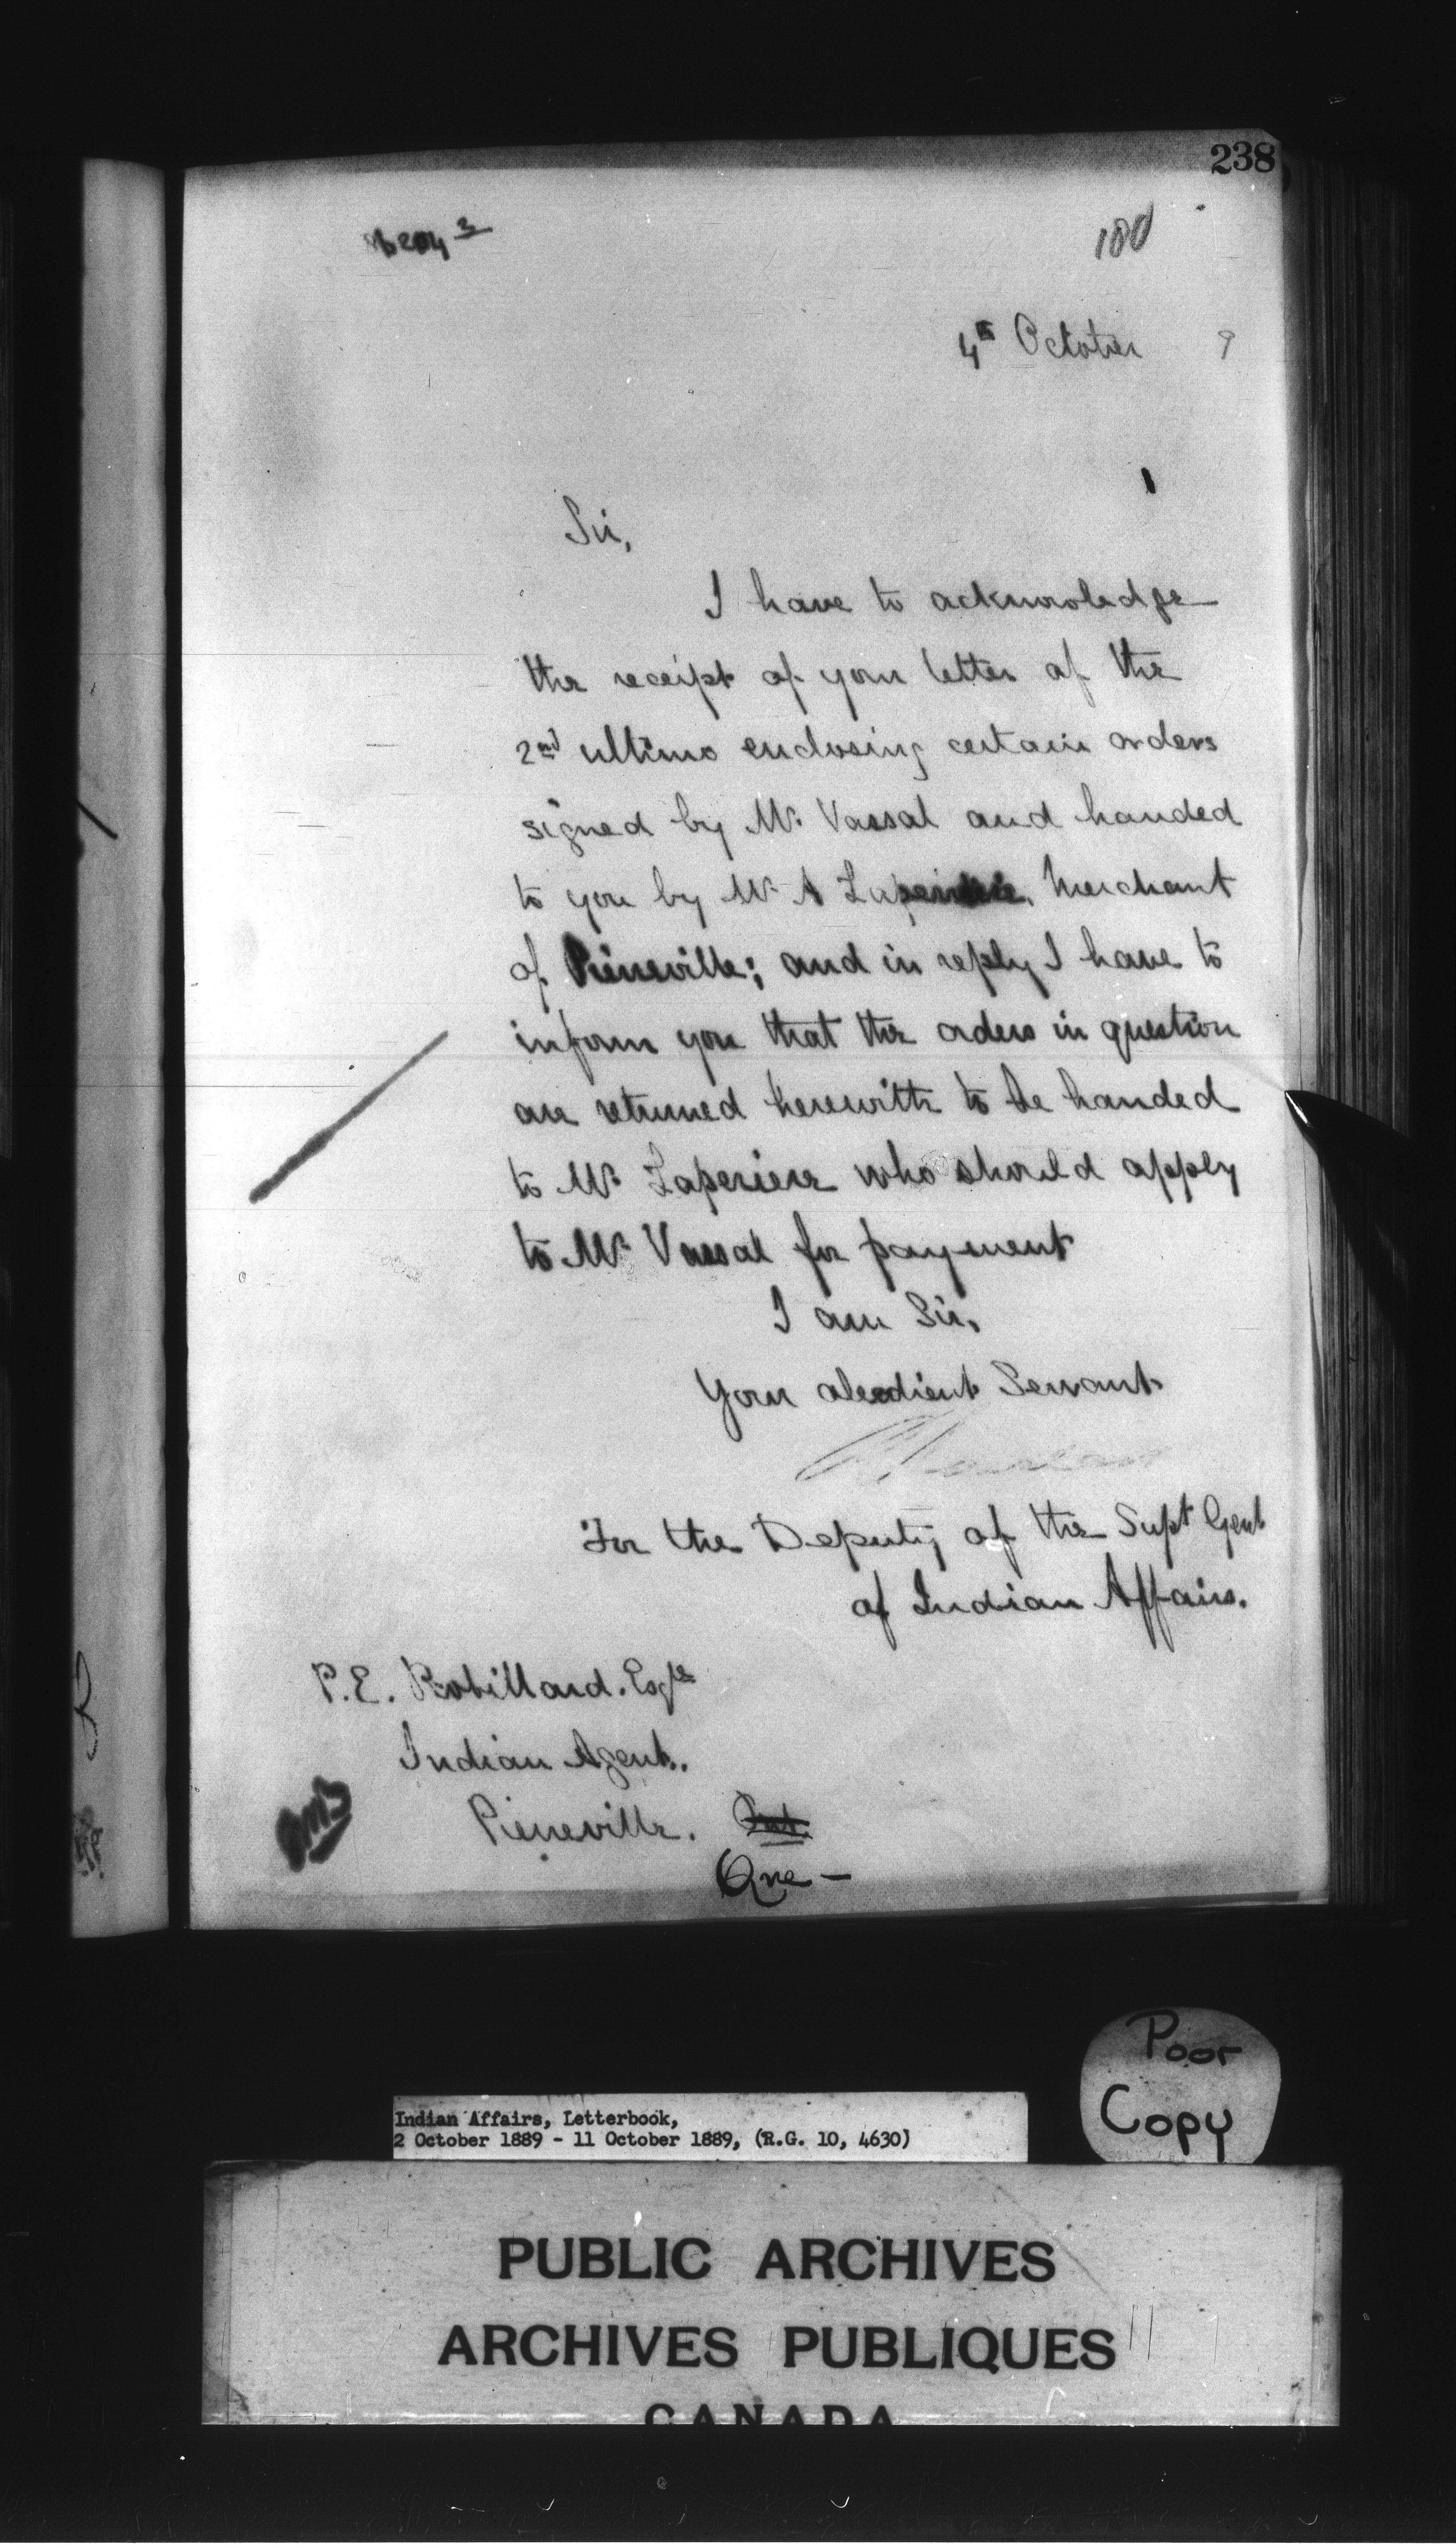 238
180
4th October 9
Sir,
I have to acknowledge
the receipt of your letter of the
2nd ultimo enclosing certain orders
signed by Mr. Vassal and handed
to you by Mr. A Merchant
of Pierreville; and in reply I have to
inform you that the orders in question
are returned herewith to be handed
to Mr. Laperiere who should apply
to Mr. Vassal for payment
I am Sir,
Your obedient Servant
For the Deputy of the Supt Genl
of Indian Affairs.
P.E. Robillard. Esqre
Indian Agent.
Pierreville. Ont.
Que —
Poor
Copy
Indian Affairs, Letterbook,
2 October 1889 - 11 October 1889, (R.G. 10, 4630)
PUBLIC ARCHIVES
ARCHIVES PUBLIQUES
CANADA